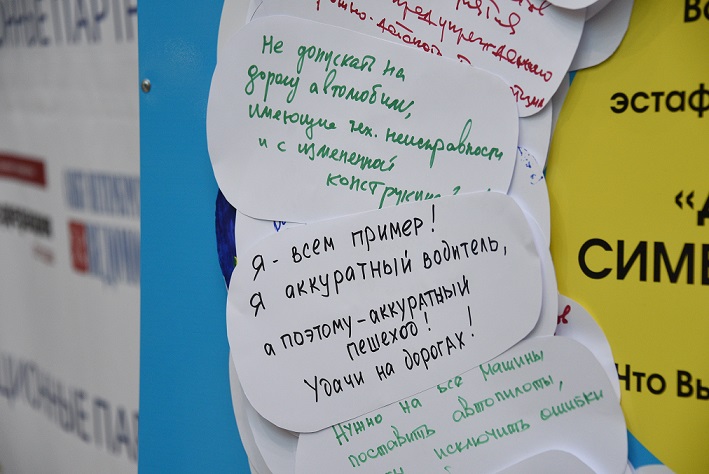 ОННЫЕ ПАРТН
ЦИОННЫЕ ПАР
предупреждению
Не допускать на
дорогу автомобили,
имеющие тех. неисправности
и с измененной
Я - всем пример!
Я аккуратный водитель,
а поэтому - аккуратный
пешеход!
Удачи на дорогах!
Нужно на все машины
поставить автопилоты,
исключить ошибки
Вс
эстаф
СИМВ
Что Вы